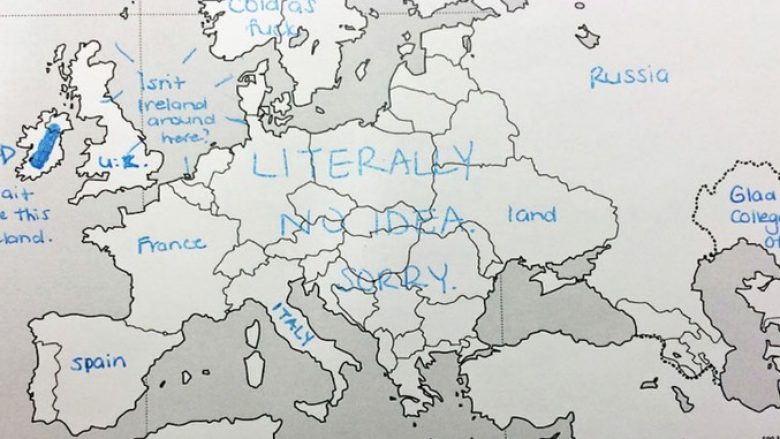 Cold as
fuck
Isn't
Ireland
around
here?
Russia
U.K.
LITERALLY
NO IDEA.
SORRY.
land
France
ITALY
Spain
D
ait
e this
land.
Glad
College
o